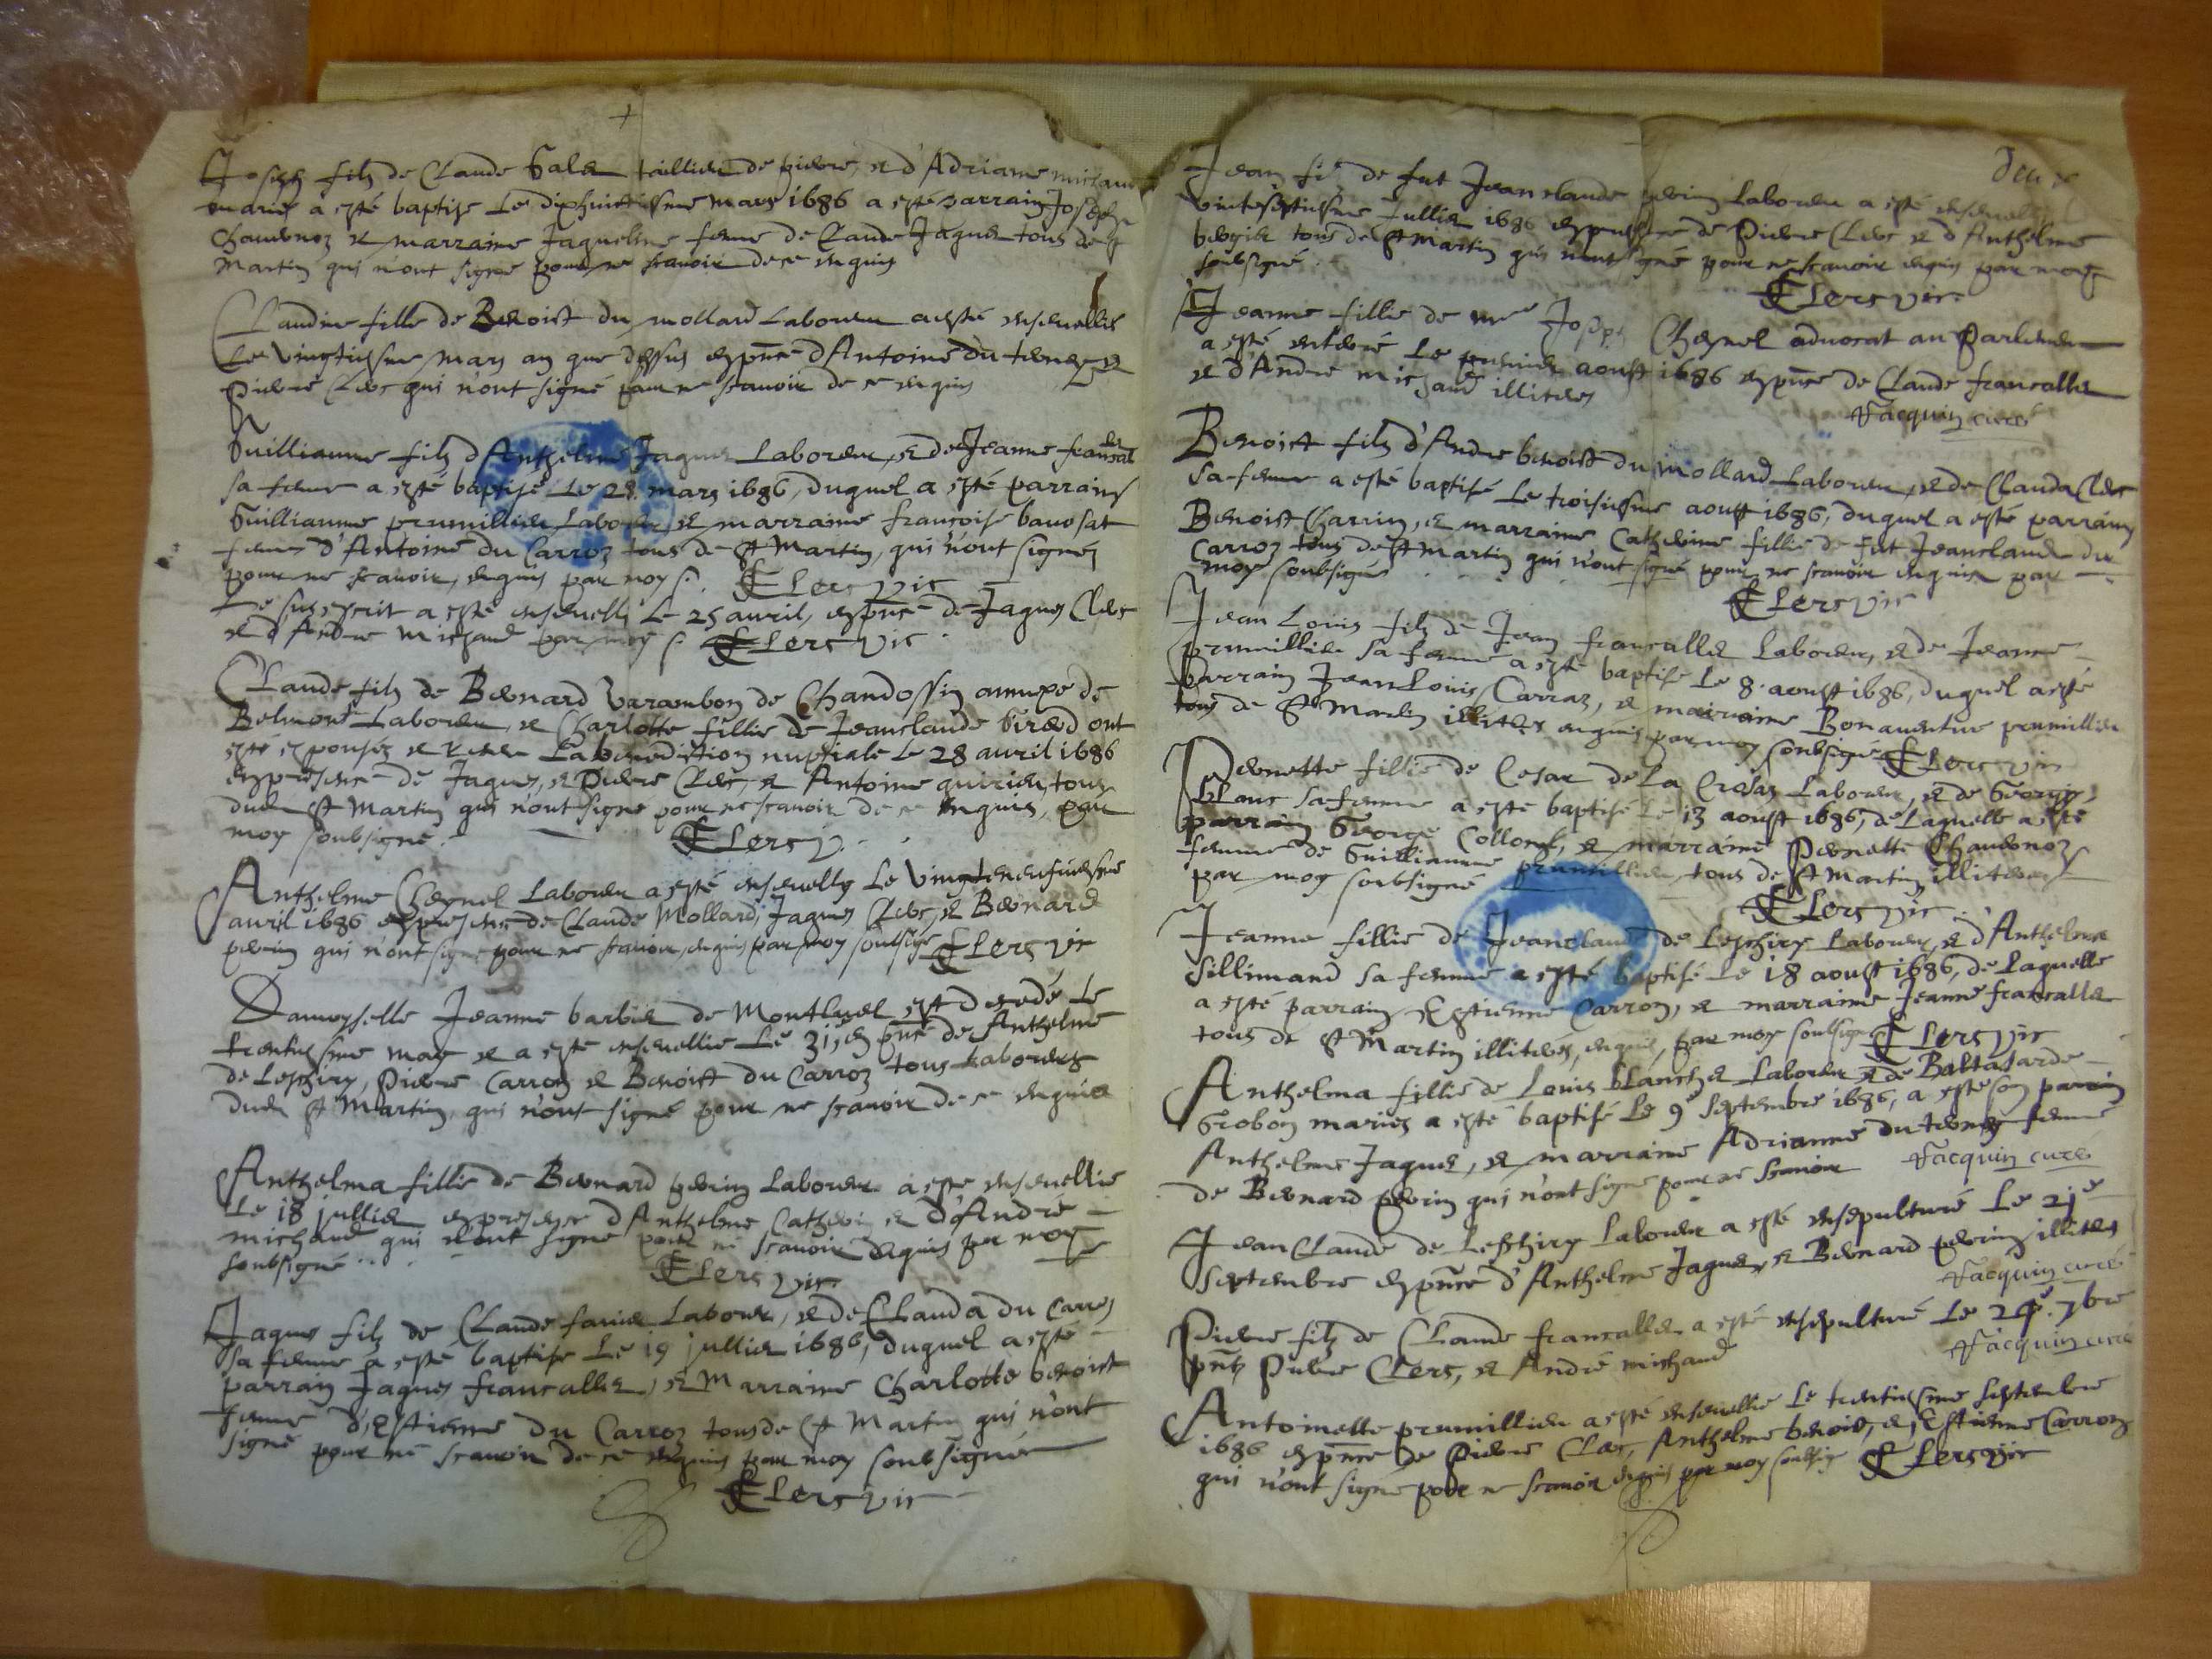 Joseph filz de Claude Galet taillieur de pierre, et d'Adriane michaud
mariés a esté baptisé Le dixhuittiesme mars 1686 a esté parrain Joseph
Chavenoz et marraine Jaqueline femme de Claude Jaquet tous de St
Martin qui n'ont signé pour ne scavoir de ce enquis
Claudine fille de Benoist du mollard Laboureur a esté ensevellie
Le vingtiesme mars an que dessus en pnce d'Antoine du et
Pierre Clerc qui n'ont signé pour ne scavoir de ce enquis
Guillianme filz d'Anthelme Jaquet Laboureur, et de Jeanne francal
sa femme a esté baptisé Le 28 mars 1686, duquel a esté parrain
Guillianme prumillieu Laboureur, et marraine françoise bavosat
femme d'Antoine du Carroz tous de St Martin, qui n'ont signé
pour ne scavoir, enquis par moy s. Clerc vic
Le susescrit a esté ensevelli Le 25 avril, en pnce de Jaques Clerc
et d'André Michaud par moy s. Clerc vic
Claude filz de Bernard Varambon de Chandossin annexe de
Belmont Laboureur, et Charlotte fillie de Jeanclaude Girerd ont
esté espousés et receu La benediction nuptiale Le 28 avril 1686
en presence de Jaques, et Pierre Clerc, et Antoine tous
dud St Martin qui n'ont signé pour ne scavoir de ce enquis, par
moy soubsigné. Clerc v.
Anthelme Chesnel Laboureur a esté ensevelly Le vingtneufviesme
avril 1686 en presence de Claude Mollard, Jaques Clerc, et Bernard
perrin qui n'ont signé pour ne scavoir, enquis par moy soubsigné Clerc vic
Damoyselle Jeanne barbier de Montluel est decedé Le
trentiesme may et a esté ensevellie Le 31, en pnce de Anthelme
de Leschiry, Pierre Carroz et Benoist du Carroz tous Laboureurs
dud St Martin, qui n'ont signé pour ne scavoir de ce enquis
Anthelma fillie de Bernard perrin Laboureur a esté ensevellie
Le 18 jullier en presence d'Anthelme Catherin et d'André
michaud qui n'ont signé pour ne scavoir enquis par moy
soubsigné. Clerc vic
Jaques filz de Claude Laboureur, et de Clauda du Carroz
sa femme a esté baptisé Le 19 jullier 1686, duquel a esté
parrain Jaques francallet, et Marraine Charlotte benoist
femme d'Estienne du Carroz tous de St Martin qui n'ont
signé pour ne scavoir de ce enquis par moy soubsigné
Clerc vic
Jean filz de fut Jean claude perrin Laboureur a esté ensevelli
vinteseptiesme Jullier 1686 en presence de Pierre Clerc et d'Anthelme
tous de St Martin qui n'ont signé pour ne scavoir enquis par moy
soubsigné. Clerc vic
Jeanne fillie de mre Joseph Chesnel advocat au Parlement
a esté enterré Le premier aoust 1686 en pnce de Claude francallet
et d'André michaud illiteres
Jacquin curé
Benoist filz d'André benoist du mollard Laboureur, et de Clauda Clerc
sa femme a esté baptisé Le troisiesme aoust 1686, duquel a esté parrain
Benoist Charrin, et marraine Catherine fillie de fut Jeanclaude du
Carroz tous de St Martin qui n'ont signé pour ne scavoir enquis par
moy soubsigné Clerc vic
Jean Louis filz de Jean francallet Laboureur, et de Jeanne
prumillieu sa femme a esté baptisé Le 8 aoust 1686, duquel a esté
parrain Jean Louis Carraz, et marraine Bonaventure prumillieu
tous de St Martin illiteres enquis par moy soubsigné Clerc vic
Pernette fillie de Cesar de La Crosaz Laboureur, et de George
blanc sa femme a esté baptisé Le 13 aoust 1686, de Laquelle a esté
parrain George Collomb, et marraine Pernette Chavenoz
femme de Guillianme prumillieu, tous de St Martin illiteres
par moy soubsigné Clerc vic
Jeanne fillie de Jeanclaude de Leschiry Laboureur, et d'Anthelma
Sillimand sa femme a esté baptisé Le 18 aoust 1686, de Laquelle
a esté parrain Estienne Carroz, et marraine Jeanne francallet
tous de St Martin illiteres, enquis, par moy soubsigné Clerc vic
Anthelma fillie de Louis blanchet Laboureur et de Baltasarde
Grobon mariés a esté baptisé Le 9e Septembre 1686, a esté son parrain
Anthelme Jaquet, et marraine Adrianne du femme
de Bernard perrin qui n'ont signé pour ne scavoir Jacquin curé
Jean Claude de Leschiry Laboureur a esté ensepulturé Le 21e
Septembre en pnce d'Anthelme Jaquet, et Bernard perrin illiteres
Jacquin curé
Pierre filz de Claude francallet a esté ensepulturé Le 24e 7bre
pnts Pierre Clerc, et André michaud Jacquin curé
Antoinette prumillieu a esté ensevellie Le trentiesme Septembre
1686 en pnce de Pierre Clerc, Anthelme benoist, et Estienne Carroz
qui n'ont signé pour ne scavoir enquis par moy soubsigné Clerc vic